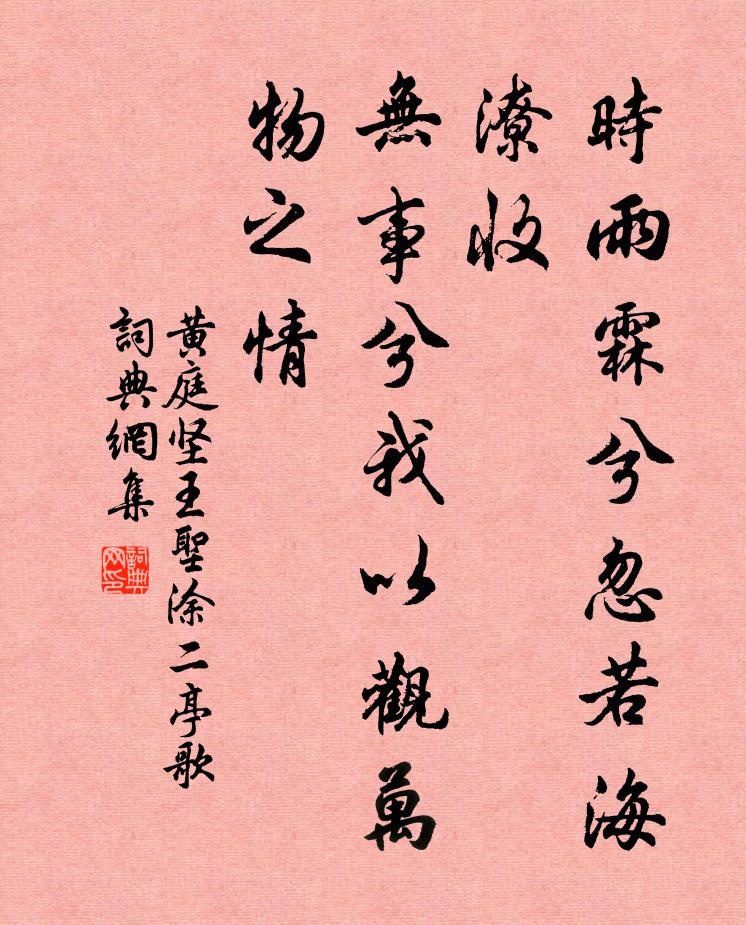 時雨霖兮忽若海
潦收
無事兮我以觀萬
物之情
黄庭坚王聖涂二亭歌
詞典網集
詞典網印